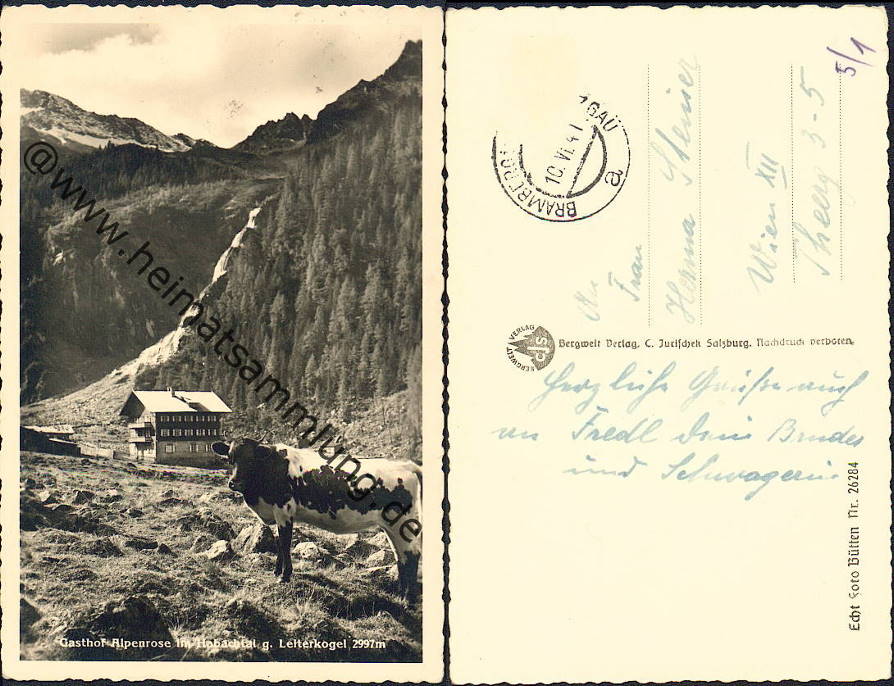 @www.heimatsammlung.de
Gasthof Alpenrose im Habachtal g. Leiterkogel 2997m
5/1
BRAMBERG
GAU
10.VI.41
a
An
Frau
Herma Steiner
Wien XII
3-5
BERGWELT VERLAG
CJS
Bergwelt Verlag. C. Jurischek Salzburg. Nachdruck verboten.
Herzliche Grüße auch
an Fredl dein Bruder
und Schwagerin
Echt Foto Bütten Nr. 26284